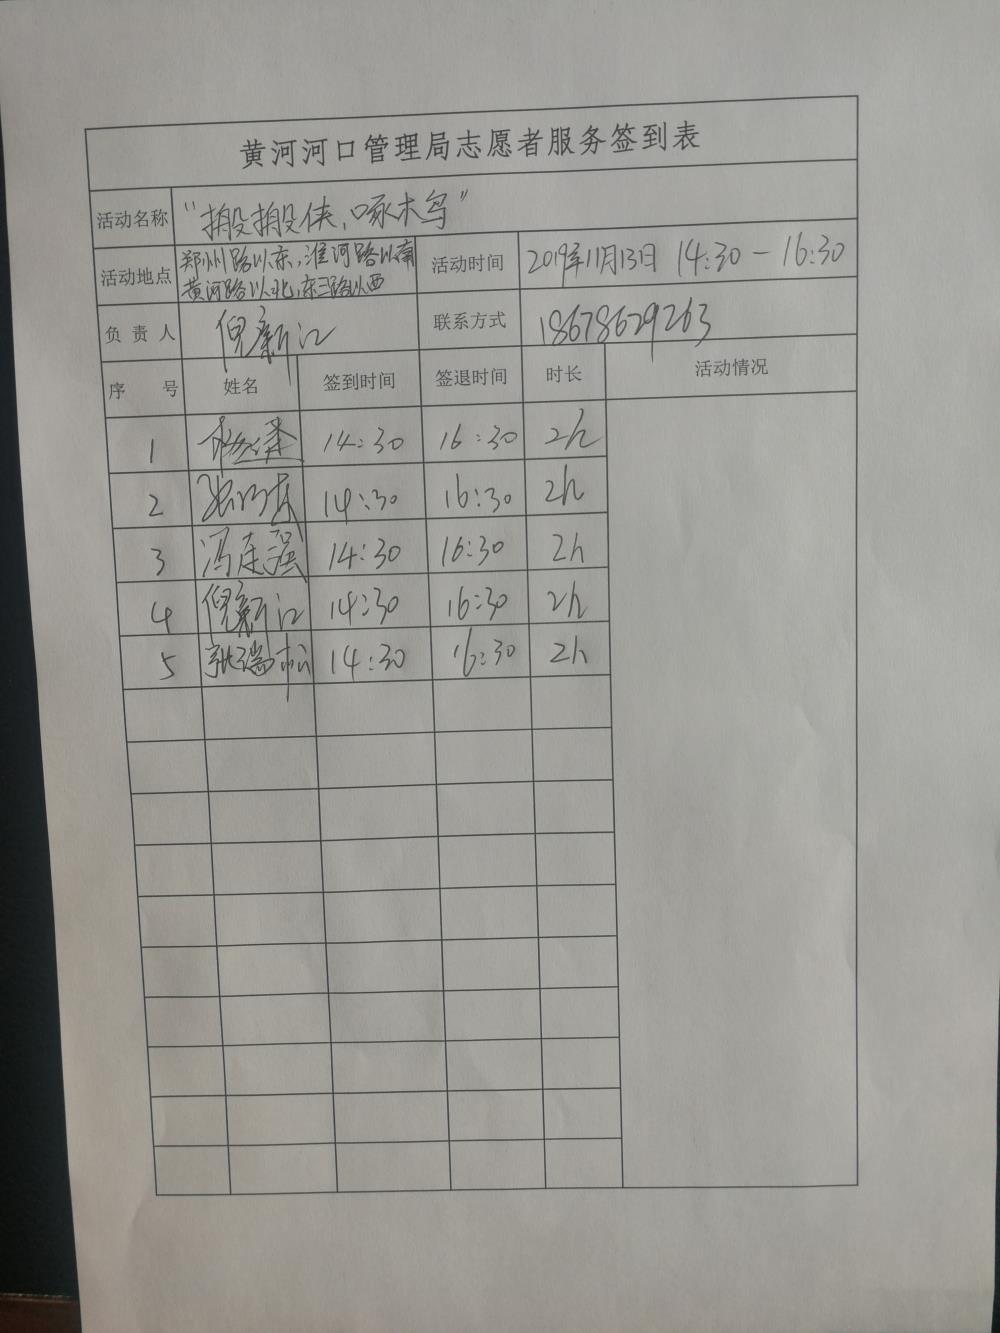 黄河河口管理局志愿者服务签到表
活动名称 “搬搬侠,啄木鸟”
活动地点 郑州路以东,淮河路以南 黄河路以北,东三路以西 活动时间 2019年11月13日 14:30-16:30
负责人 倪新江 联系方式 18678629263
序号 姓名 签到时间 签退时间 时长 活动情况
1 14:30 16:30 2h
2 14:30 16:30 2h
3 冯连强 14:30 16:30 2h
4 倪新江 14:30 16:30 2h
5 瑞松 14:30 16:30 2h